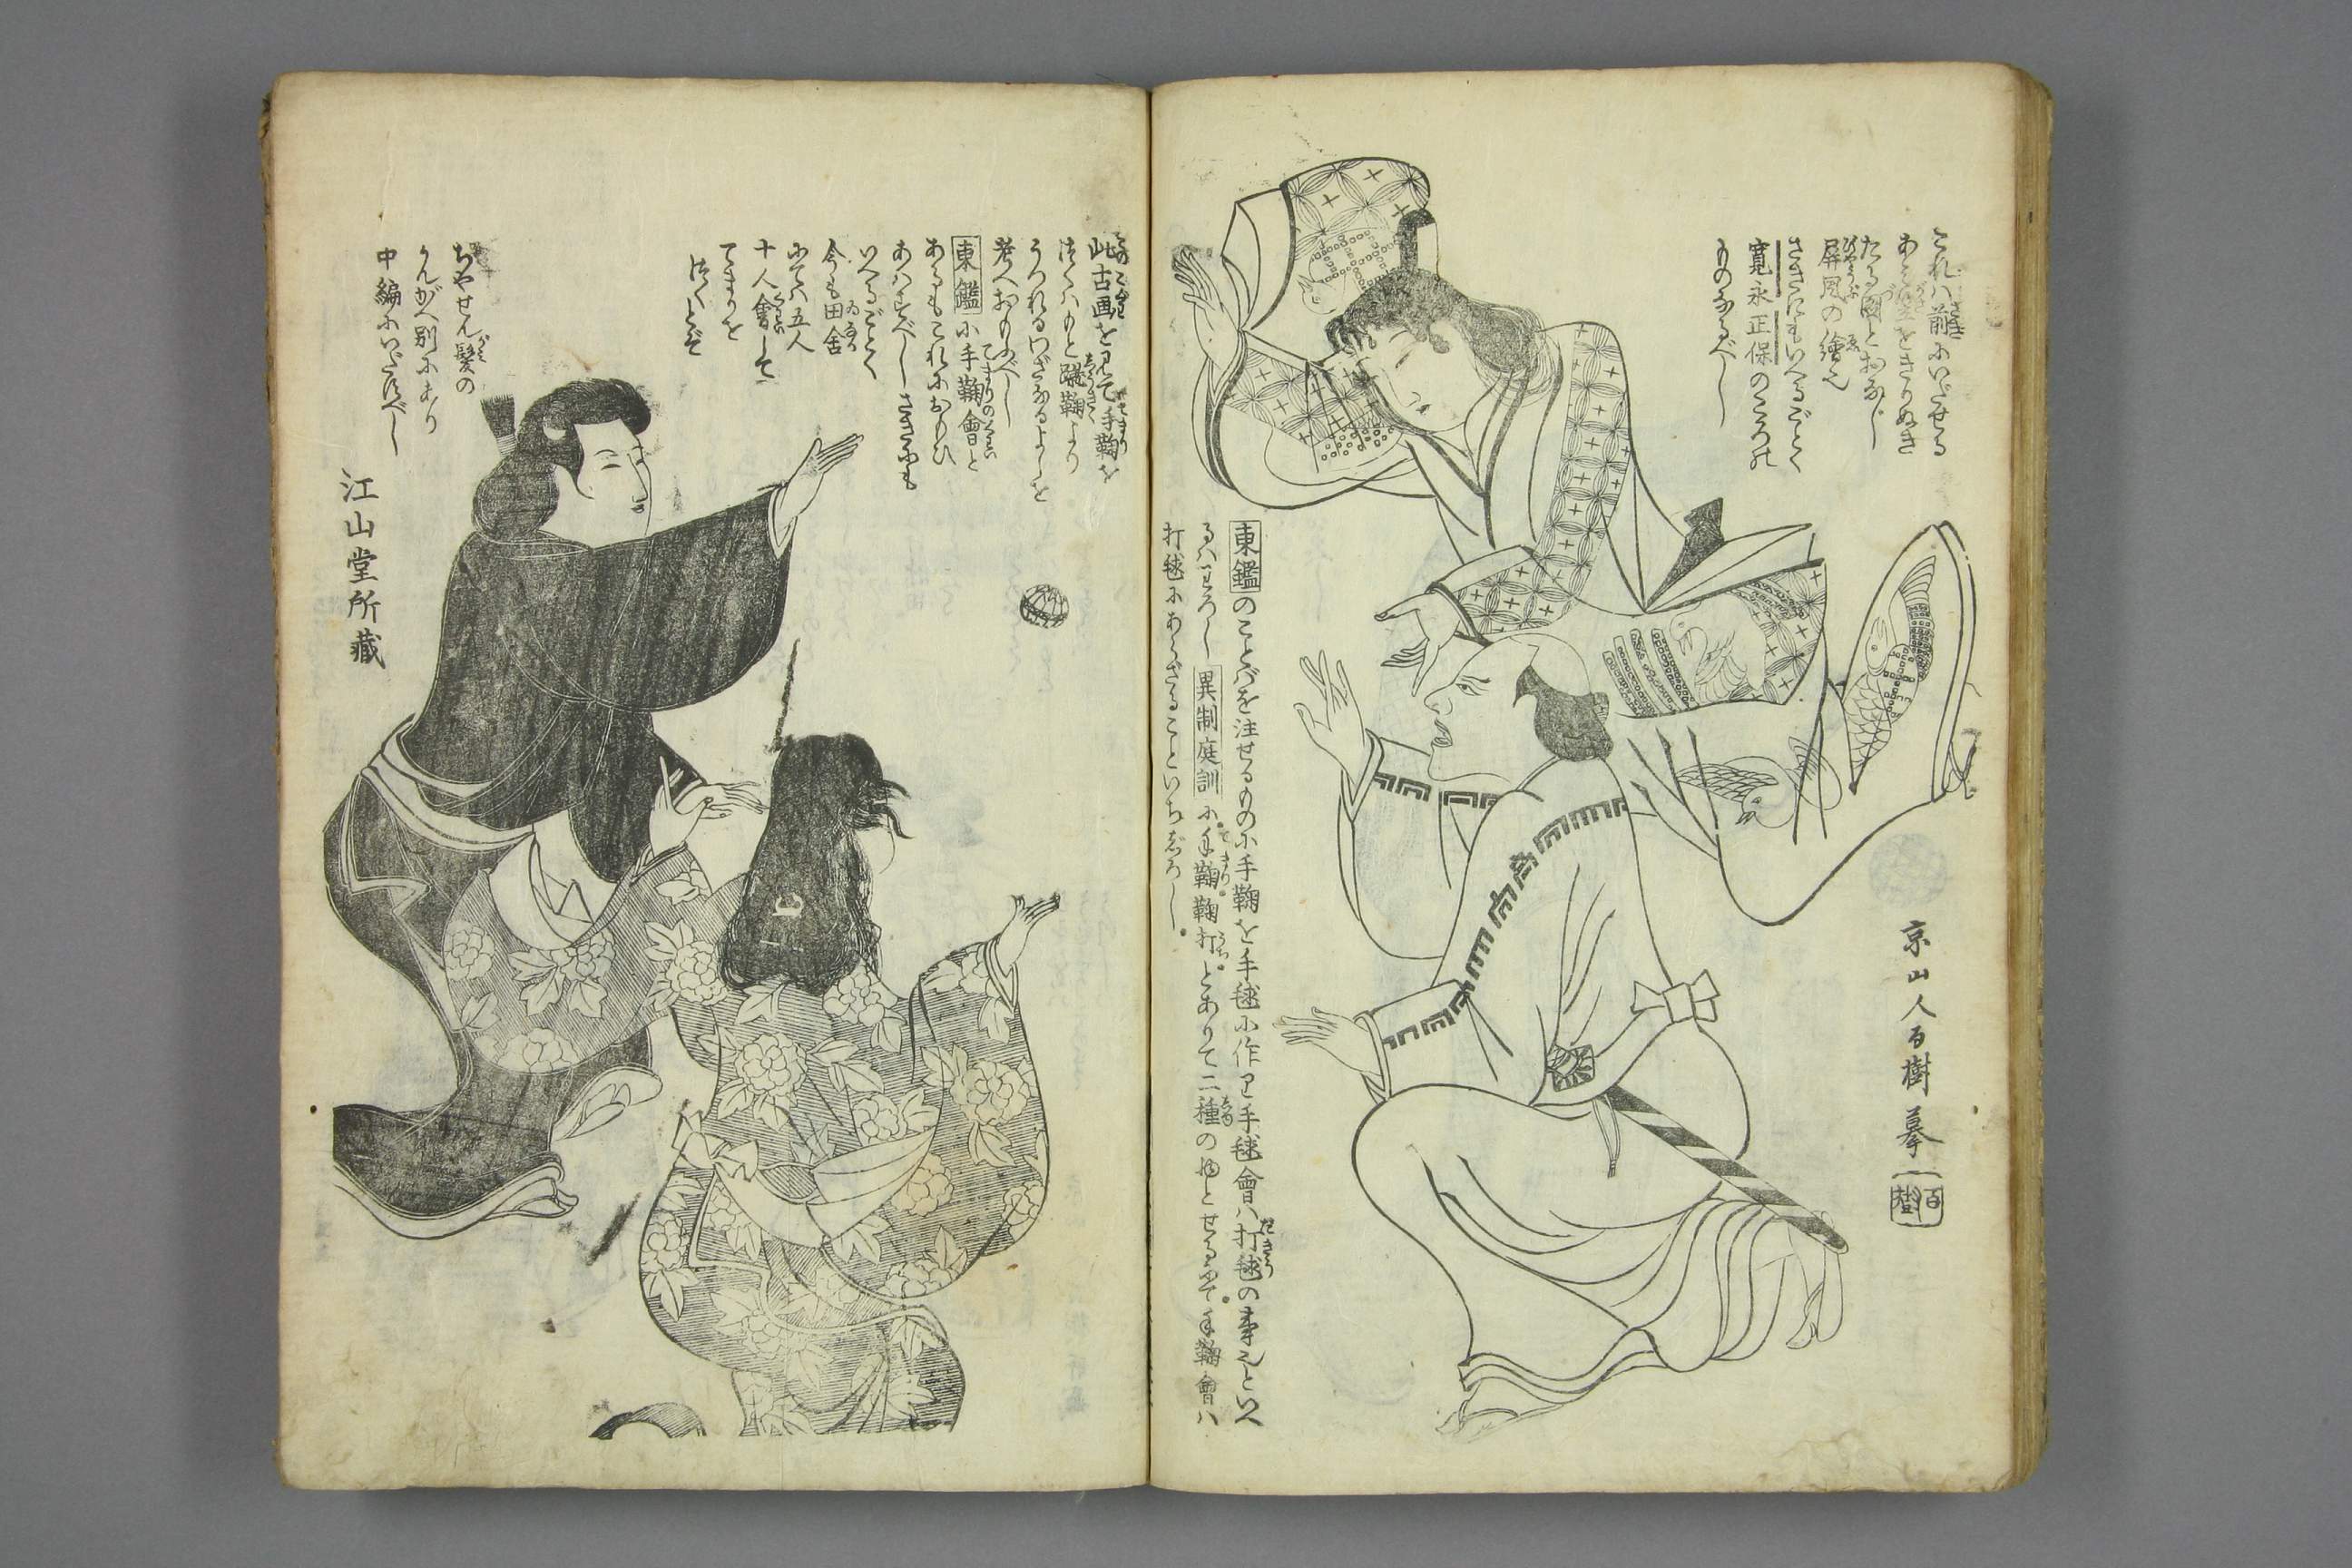 これハ前にいだせる
あそびをきりぬき
たる図とおなじ
屏風の繪也
さきにもいへるごとく
寛永正保のころの
ものなるべし
京山人百樹摹
百樹
東鑑のことバを注せるものに手鞠を手毬に作り手毬會ハ打毬の事也といへ
るハわろし異制庭訓に手鞠鞠打とありて二種の物とせるにて手鞠會ハ
打毬にあらざることいちじろし
此古画を見て手鞠を
つくハもと蹴鞠より
うつれるわざなるよしを
考へおもふべし
東鑑に手鞠會と
あるもこれにおもひ
あハすべしさきにも
いへるごとく
今も田舎
にてハ五人
十人會して
てまりを
つくとぞ
ちやせん髪の
かんがへ別にあり
中編にいだすべし
江山堂所藏